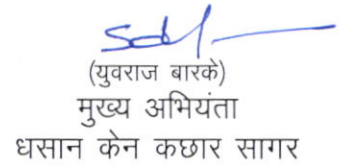 (युवराज बारके)
मुख्य अभियंता
धसान केन कछार सागर